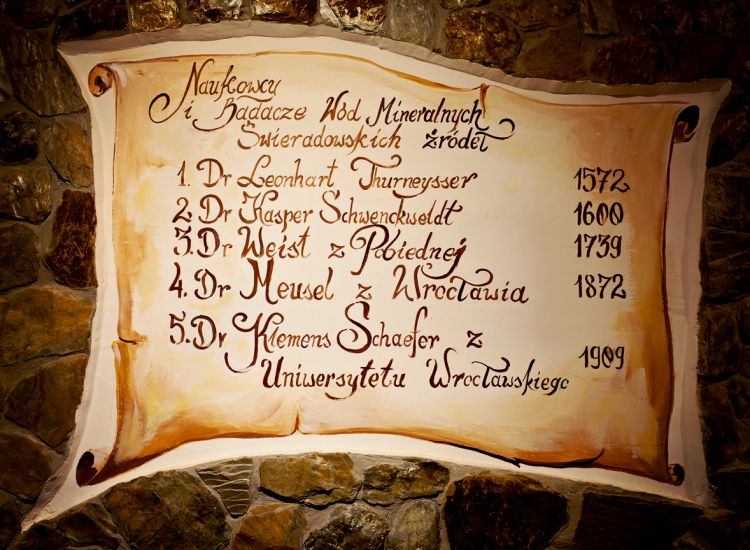 Naukowcy
i Badacze Wód Mineralnych
Świeradowskich źródeł
1. Dr Leonhart Thurneysser 1572
2 Dr Kasper Schwenckweldt 1600
3. Dr Weist z Pobiednej 1739
4. Dr Meusel z Wrocławia 1872
5. Dr Klemens Schaefer z
Uniwersytetu Wrocławskiego 1909